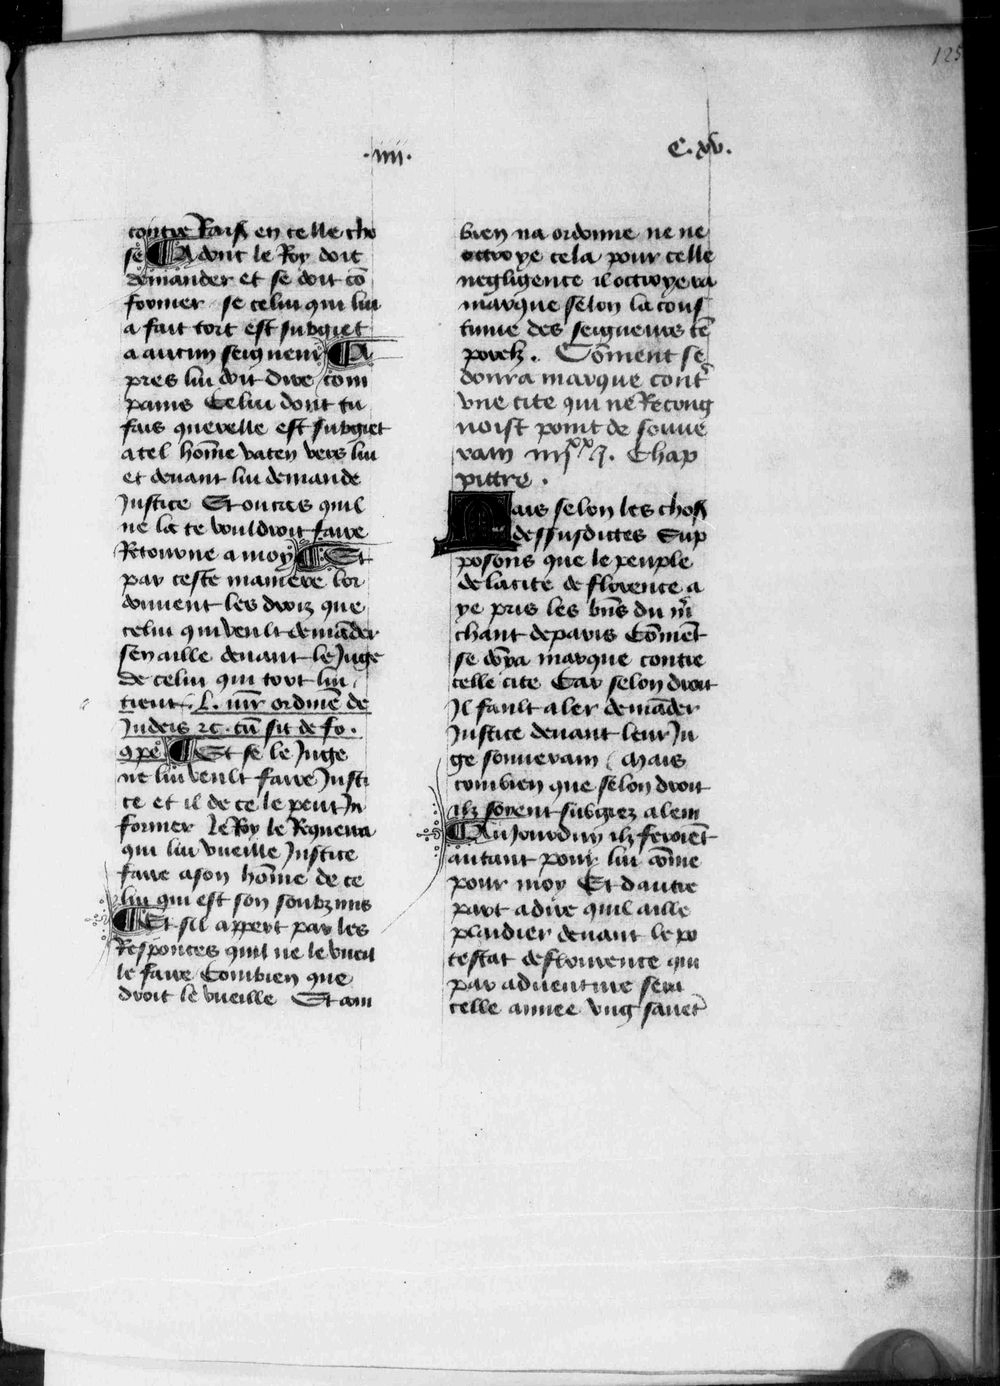 125
.iiii.
C. xv.
contre Raisō en celle cho
se ¶ Adont le Roy doit
demander et se doit cō
former se celui qui lui
a fait tort est subgiet
a aucun seigneur ¶ A
pres lui doit dire com
pains Celui dont tu
fais querelle est subgiet
a tel hom̄e vaten vers lui
et deuant lui demande
Justice Et ou cas quil
ne la te vouldroit faire
Retourne a moy ¶ Et
par ceste maniere lor
donnent les droiz que
celui qui veult demāder
sen aille deuant le Juge
de celui qui tort lui
tient
Judeis ⁊c. cū sit de fo.
9pe. ¶ Et se le Juge
ne lui veult faire Justi
ce et il de ce le peut In
former Le Roy le Requerra
qui lui vueille Justice
faire a son hom̄e de ce
lui qui est son soubzmis
¶ Et sil appert par les
Responces quil ne le vueil
le faire Combien que
droit le vueille Et com
bien na ordonne ne ne
ottroye cela pour celle
negligence il ottroyera
marque selon la cous
tume des seigneurs tē
porelz. Cōment se
donra marque cont̄
vne cite qui ne Recong
noist point de souue
rain iiij xx j. Chap
pittre.
Mais selon les choses
dessusdictes Sup
posons que le peuple
de la cite de florence a
ye pris les bn̄s du m̄
chant de paris Cōmēt
se dōra marque contre
celle cite Car selon droit
Il fault aler demāder
Justice deuant leur Ju
ge souuerain Mais
combien que selon droit
ilz soyent subgiez a lem
¶ Au Jourduy ilz feroiēt
autant pour lui cōme
pour moy Et dautre
part a dire quil aille
plaidier deuant le po
testat de flourence qui
par aduenture sera
celle annee vng sauet̄